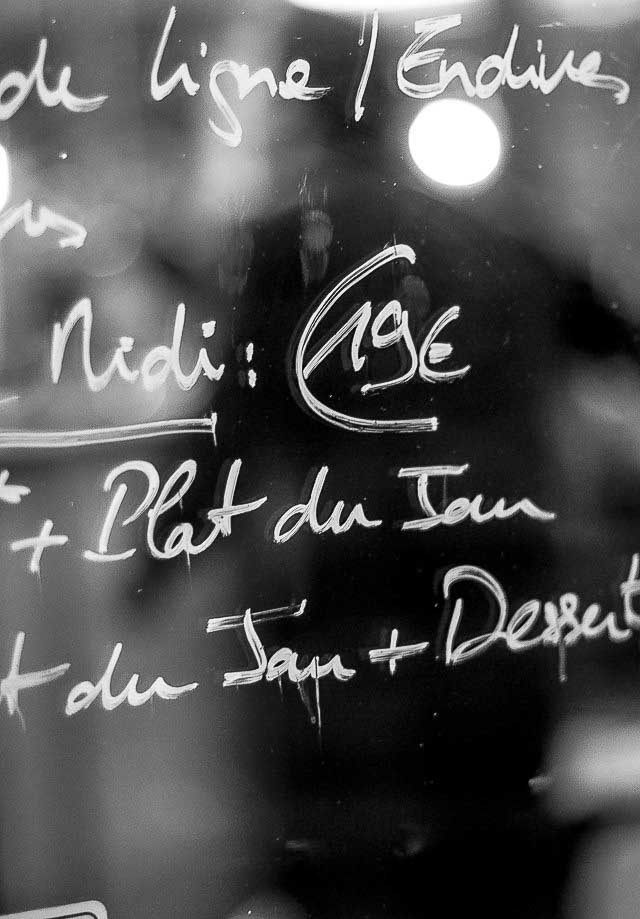 de ligne / Endives
Midi : 19€
+ Plat du Jour
t du Jour + Dessert